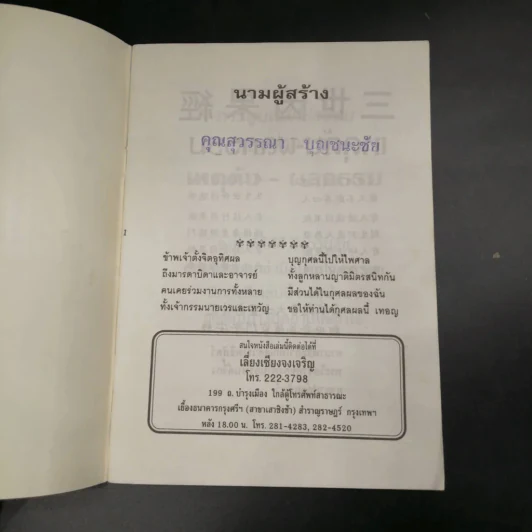 นามผู้สร้าง
คุณสุวรรณา บุญชนะชัย
ข้าพเจ้าตั้งจิตอุทิศผล บุญกุศลนี้ไปให้ไพศาล
ถึงมารดาบิดาและอาจารย์ ทั้งลูกหลานญาติมิตรสนิทกัน
คนเคยร่วมงานการทั้งหลาย มีส่วนได้ในกุศลผลของฉัน
ทั้งเจ้ากรรมนายเวรและเทวัญ ขอให้ท่านได้กุศลผลนี้ เทอญ
สนใจหนังสือเล่มนี้ติดต่อได้ที่
เลี่ยงเซียงจงเจริญ
โทร. 222-3798
199 ถ. บำรุงเมือง ใกล้ตู้โทรศัพท์สาธารณะ
เยื้องธนาคารกรุงศรีฯ (สาขาเสาชิงช้า) สำราญราษฎร์ กรุงเทพฯ
หลัง 18.00 น. โทร. 281-4283, 282-4520